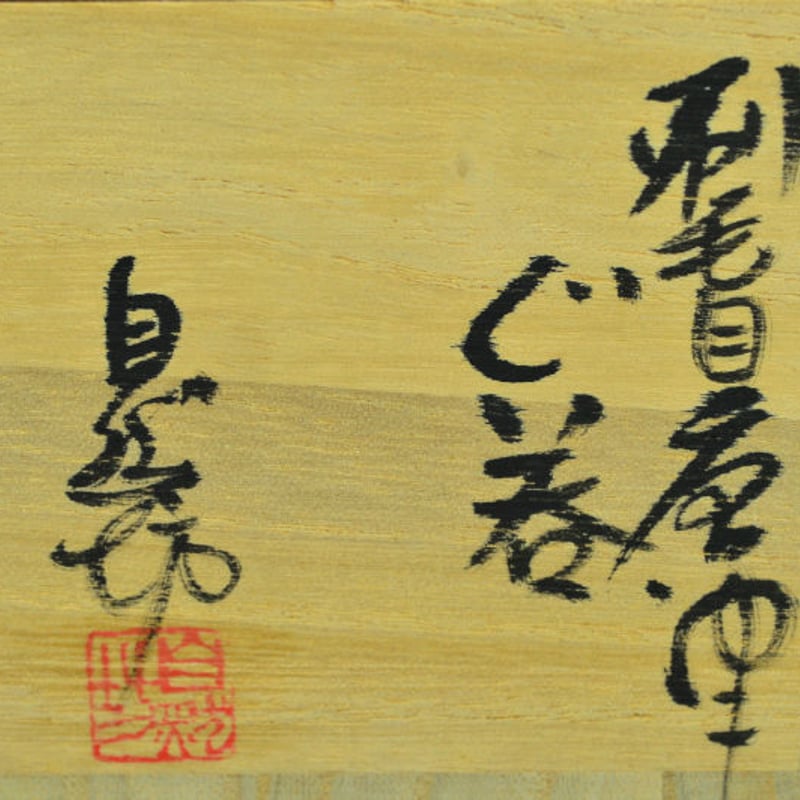 刷毛目唐津
ぐい呑
自然坊